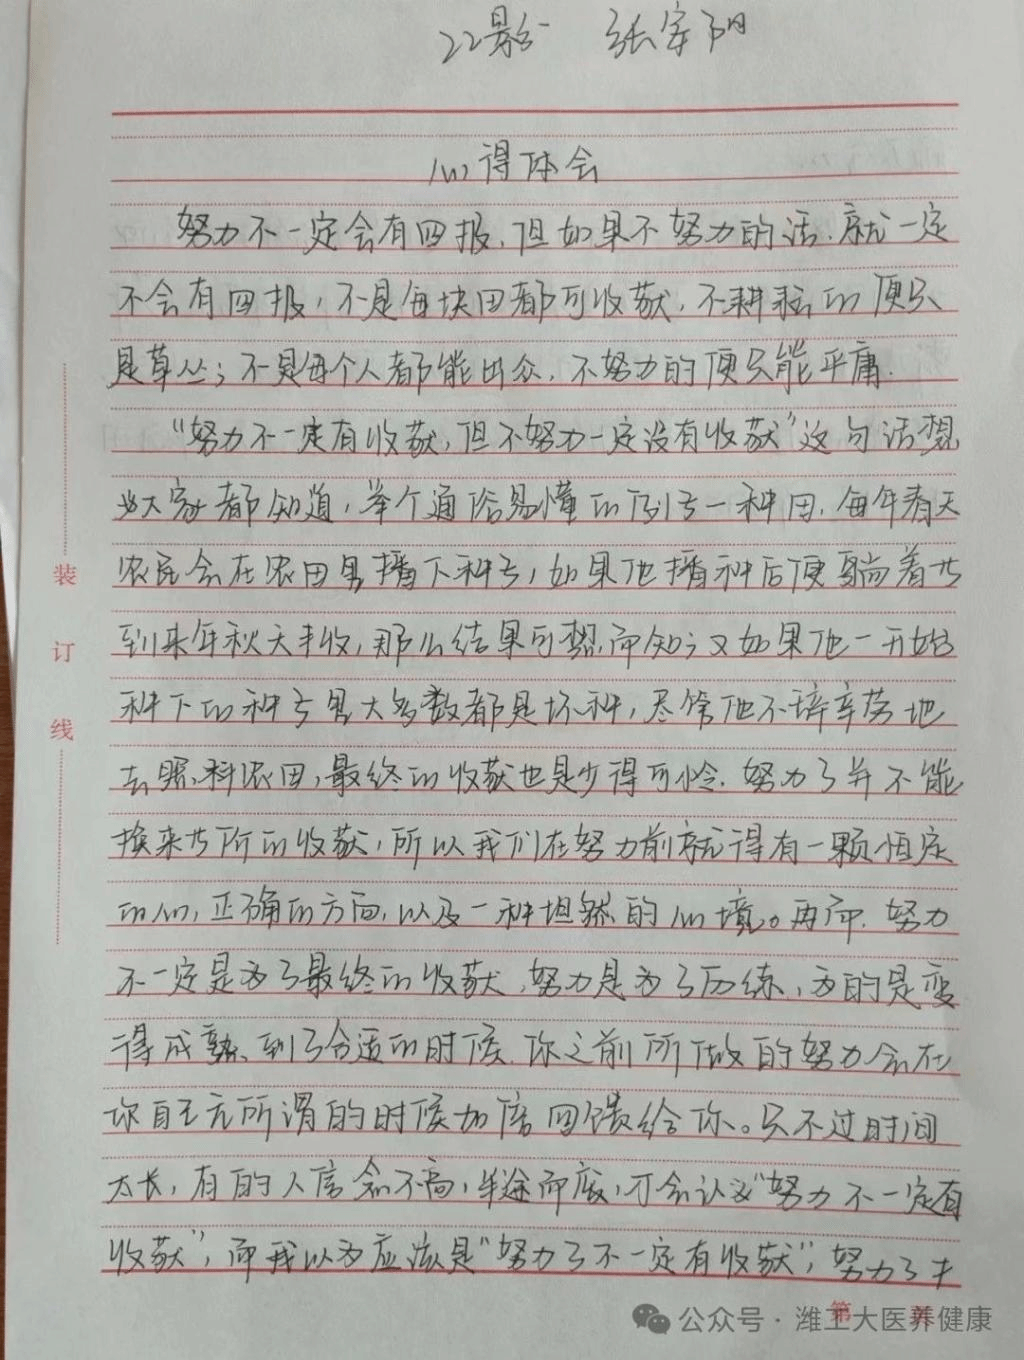 22影 张宇阳
心得体会
努力不一定会有回报,但如果不努力的话.就一定
不会有回报,不是每块田都可收获,不耕耘的便只
是草丛;不是每个人都能出众,不努力的便只能平庸.
“努力不一定有收获,但不努力一定没有收获”这句话想
必大家都知道,举个通俗易懂的例子一种田,每年春天
农民会在农田里播下种子,如果他播种后便躺着等
到来年秋天丰收,那么结果可想而知;又如果他一开始
种下的种子里大多数都是坏种,尽管他不辞辛劳地
去照料农田,最终的收获也是少得可怜.努力了并不能
换来等所的收获,所以我们在努力前就得有一颗恒定
的心,正确的方向,以及一种坦然的心境。再而.努力
不一定是为了最终的收获,努力是为了历练,为的是变
得成熟.到了合适的时候.你之前所做的努力会在
你自无所谓的时候加倍回馈给你。只不过时间
太长,有的人信念不高,半途而废,才会认为“努力不一定有
收获”,而我以为应该是“努力了不一定有收获”,努力了才
装
订
线
第
公众号·潍工大医养健康